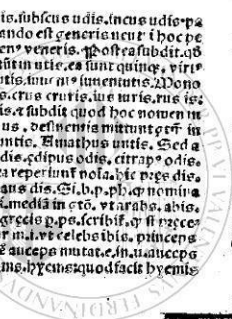 is.subscus udis.incus udis.pa
ando est generis neut i hoc pe
en⁹ veneris. Postea subdit.qđ
tūt in utis.ea sunt quinq̄. virt⁹
utis.iuuēt⁹ iuuentutis. Mono
s.crus cruris.ius iuris.rus is:
is.⁊ subdit quod hoc nomen in
us. desinentia mittunt gtm̄ in
untis. Amathus untis. Sed a
dis.edipus odis. citrap⁹ odis.
ta reperiunt nola.hic pres dis.
aus dis. Si.b.p.ph.q nomina
i.mediā in gtō. vt arabs. abis.
grecis p.ps.scribit̄.q si prece
r m.i.vt celebs ibis. princeps
e auceps mutat.e.in.u.auceps
ms.hyems:quod facit hyemis
PP VI VALEN
FERDINANDV